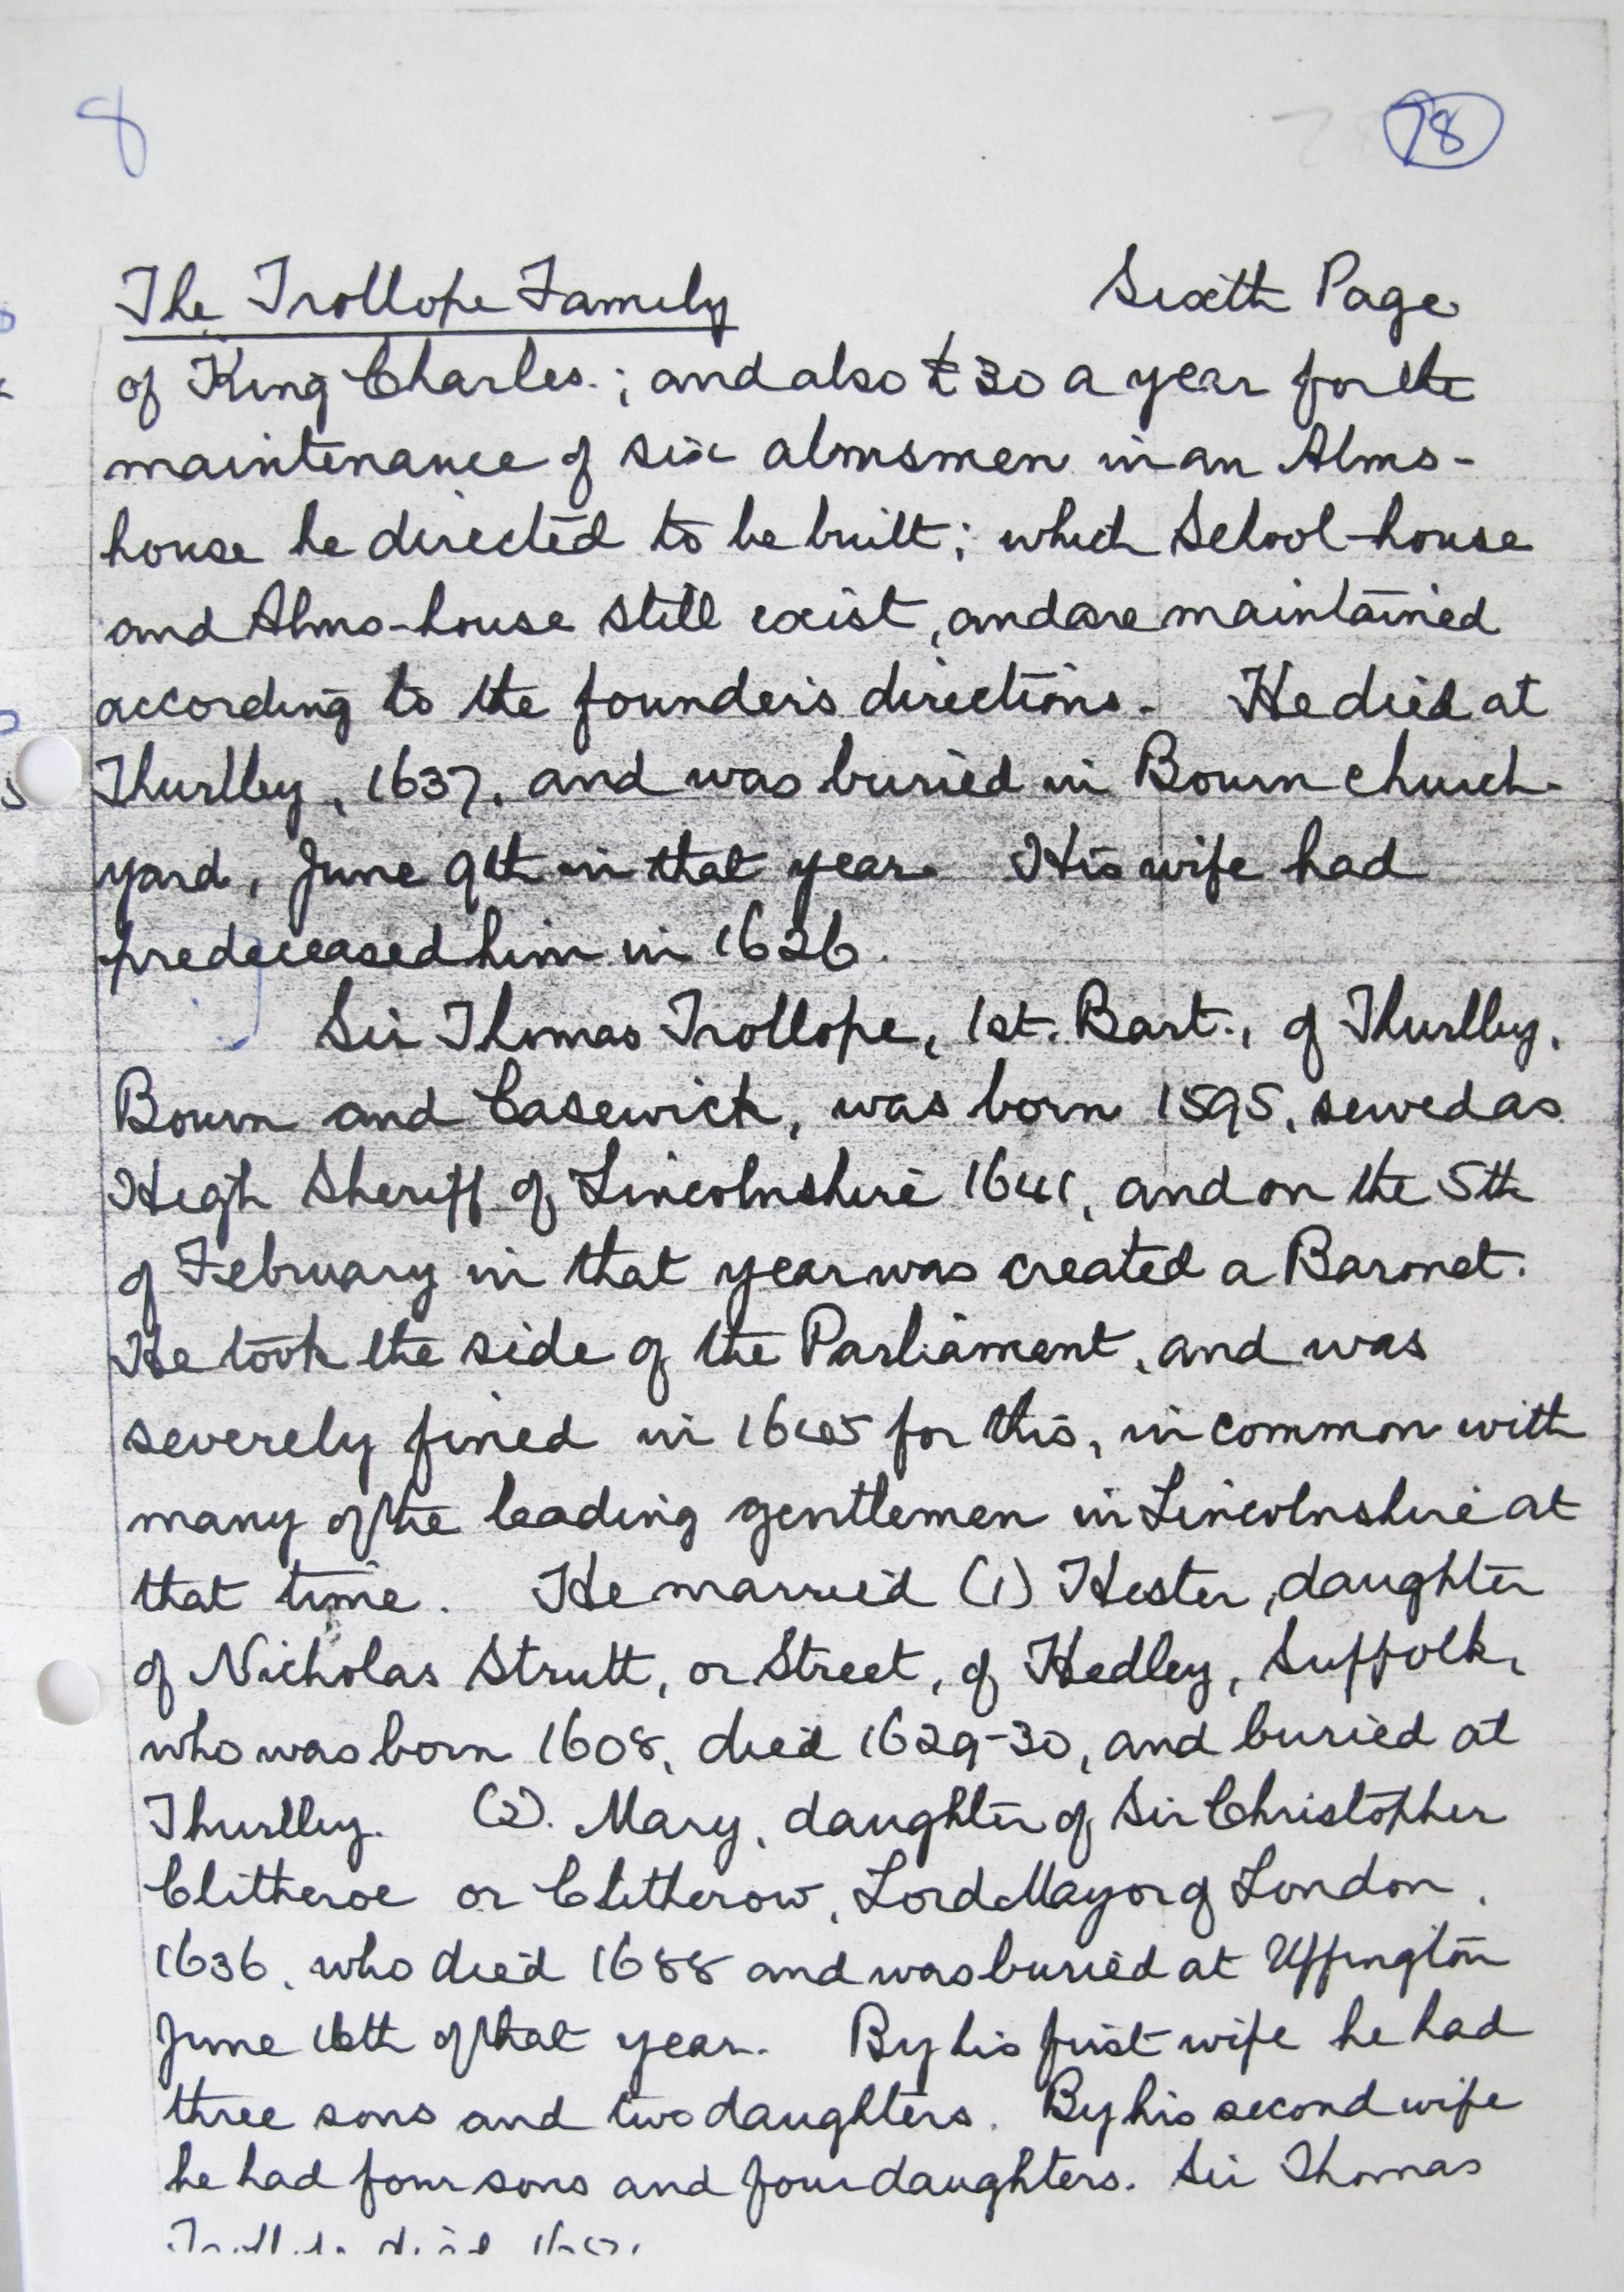 8
78
The Trollope Family Sixth Page
of King Charles.; and also £30 a year for the
maintenance of six almsmen in an Alms-
house he directed to be built; which School-house
and Alms-house still exist, and are maintained
according to the founder's directions. He died at
Thurlby, 1637, and was buried in Bourn church-
yard, June 9th in that year. His wife had
predeceased him in 1626.
Sir Thomas Trollope, 1st. Bart., of Thurlby,
Bourn and Casewick, was born 1595, served as
High Sheriff of Lincolnshire 1641, and on the 5th
of February in that year was created a Baronet.
He took the side of the Parliament, and was
severely fined in 1645 for this, in common with
many of the leading gentlemen in Lincolnshire at
that time. He married (1) Hester, daughter
of Nicholas Strutt, or Street, of Hedley, Suffolk,
who was born 1608, died 1629-30, and buried at
Thurlby. (2). Mary, daughter of Sir Christopher
Clitheroe or Clitherow, Lord Mayor of London,
1636, who died 1688 and was buried at Uffington
June 16th of that year. By his first wife he had
three sons and two daughters. By his second wife
he had four sons and four daughters. Sir Thomas